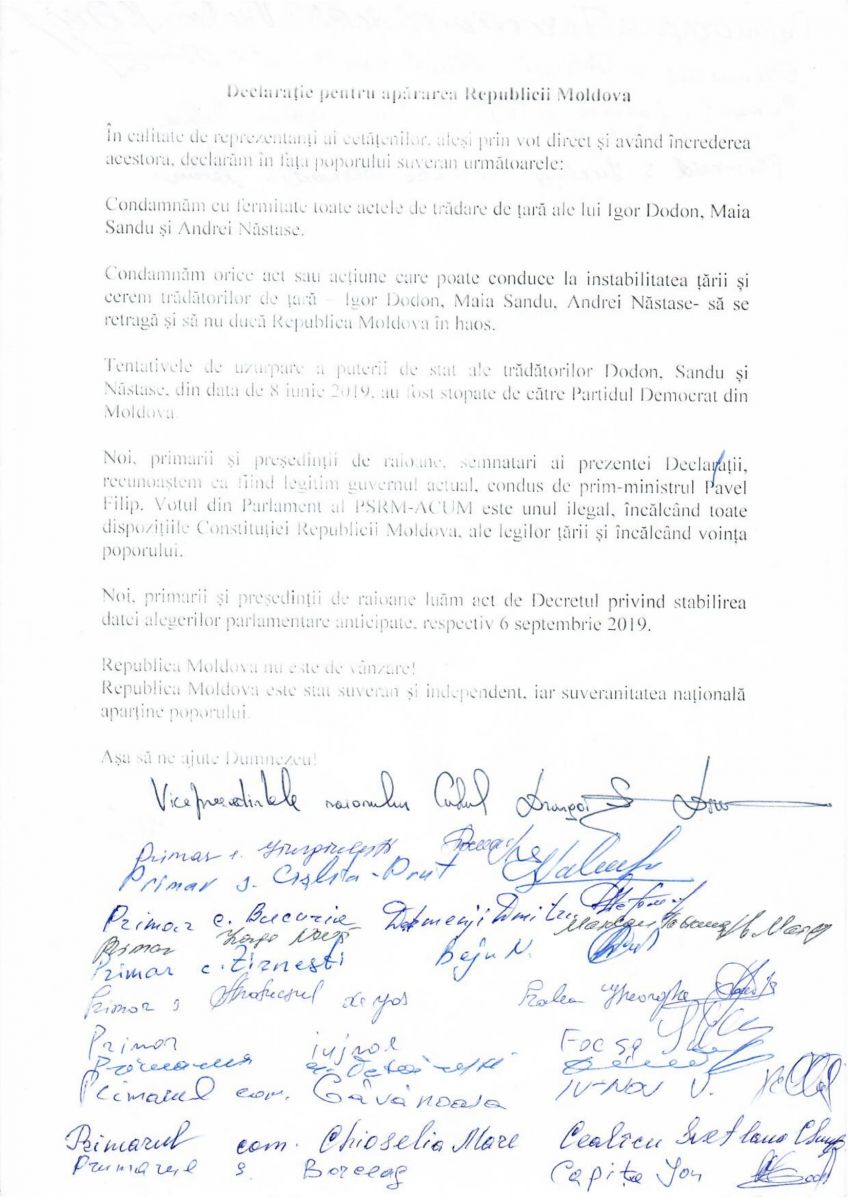 Declarație pentru apărarea Republicii Moldova
În calitate de reprezentanți ai cetățenilor, aleși prin vot direct și având încrederea
acestora, declarăm în fața poporului suveran următoarele:
Condamnăm cu fermitate toate actele de trădare de țară ale lui Igor Dodon, Maia
Sandu și Andrei Năstase.
Condamnăm orice act sau acțiune care poate conduce la instabilitatea țării și
cerem trădătorilor de țară – Igor Dodon, Maia Sandu, Andrei Năstase- să se
retragă și să nu ducă Republica Moldova în haos.
Tentativele de uzurpare a puterii de stat ale trădătorilor Dodon, Sandu și
Năstase, din data de 8 iunie 2019, au fost stopate de către Partidul Democrat din
Moldova.
Noi, primarii și președinții de raioane, semnatari ai prezentei Declarații,
recunoaștem ca fiind legitim guvernul actual, condus de prim-ministrul Pavel
Filip. Votul din Parlament al PSRM-ACUM este unul ilegal, încălcând toate
dispozițiile Constituției Republicii Moldova, ale legilor țării și încălcând voința
poporului.
Noi, primarii și președinții de raioane luăm act de Decretul privind stabilirea
datei alegerilor parlamentare anticipate, respectiv 6 septembrie 2019.
Republica Moldova nu este de vânzare!
Republica Moldova este stat suveran și independent, iar suveranitatea națională
aparține poporului.
Așa să ne ajute Dumnezeu!
Vicepreședintele raionului Cahul
Primar s.
Primar s. Cîșlița-Prut
Primar c. Bucuria Dmitru
Primar
Primar c. Zîrnești Beju N.
Primar s. de jos Gheorghe
Primar Focșa
Primarul com. Găvănoasa
Primarul com. Chioselia Mare Svetlana
Primarul s. Borceag Capița Ion